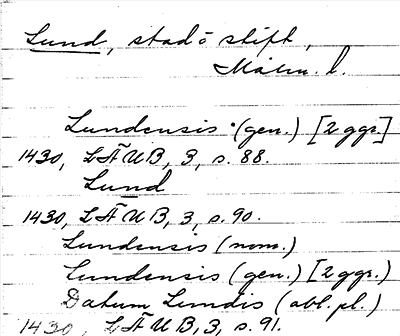 Lund, stad o stift,
Malm. l.
Lundensis (gen.) [2 ggr.]
1430, LÄUB, 3, s. 88.
Lund
1430, LÄUB, 3, s. 90.
Lundensis (nom.)
Lundensis (gen.) [2 ggr.)
Datum Lundis (abl. pl.)
1430, LÄUB, 3, s. 91.